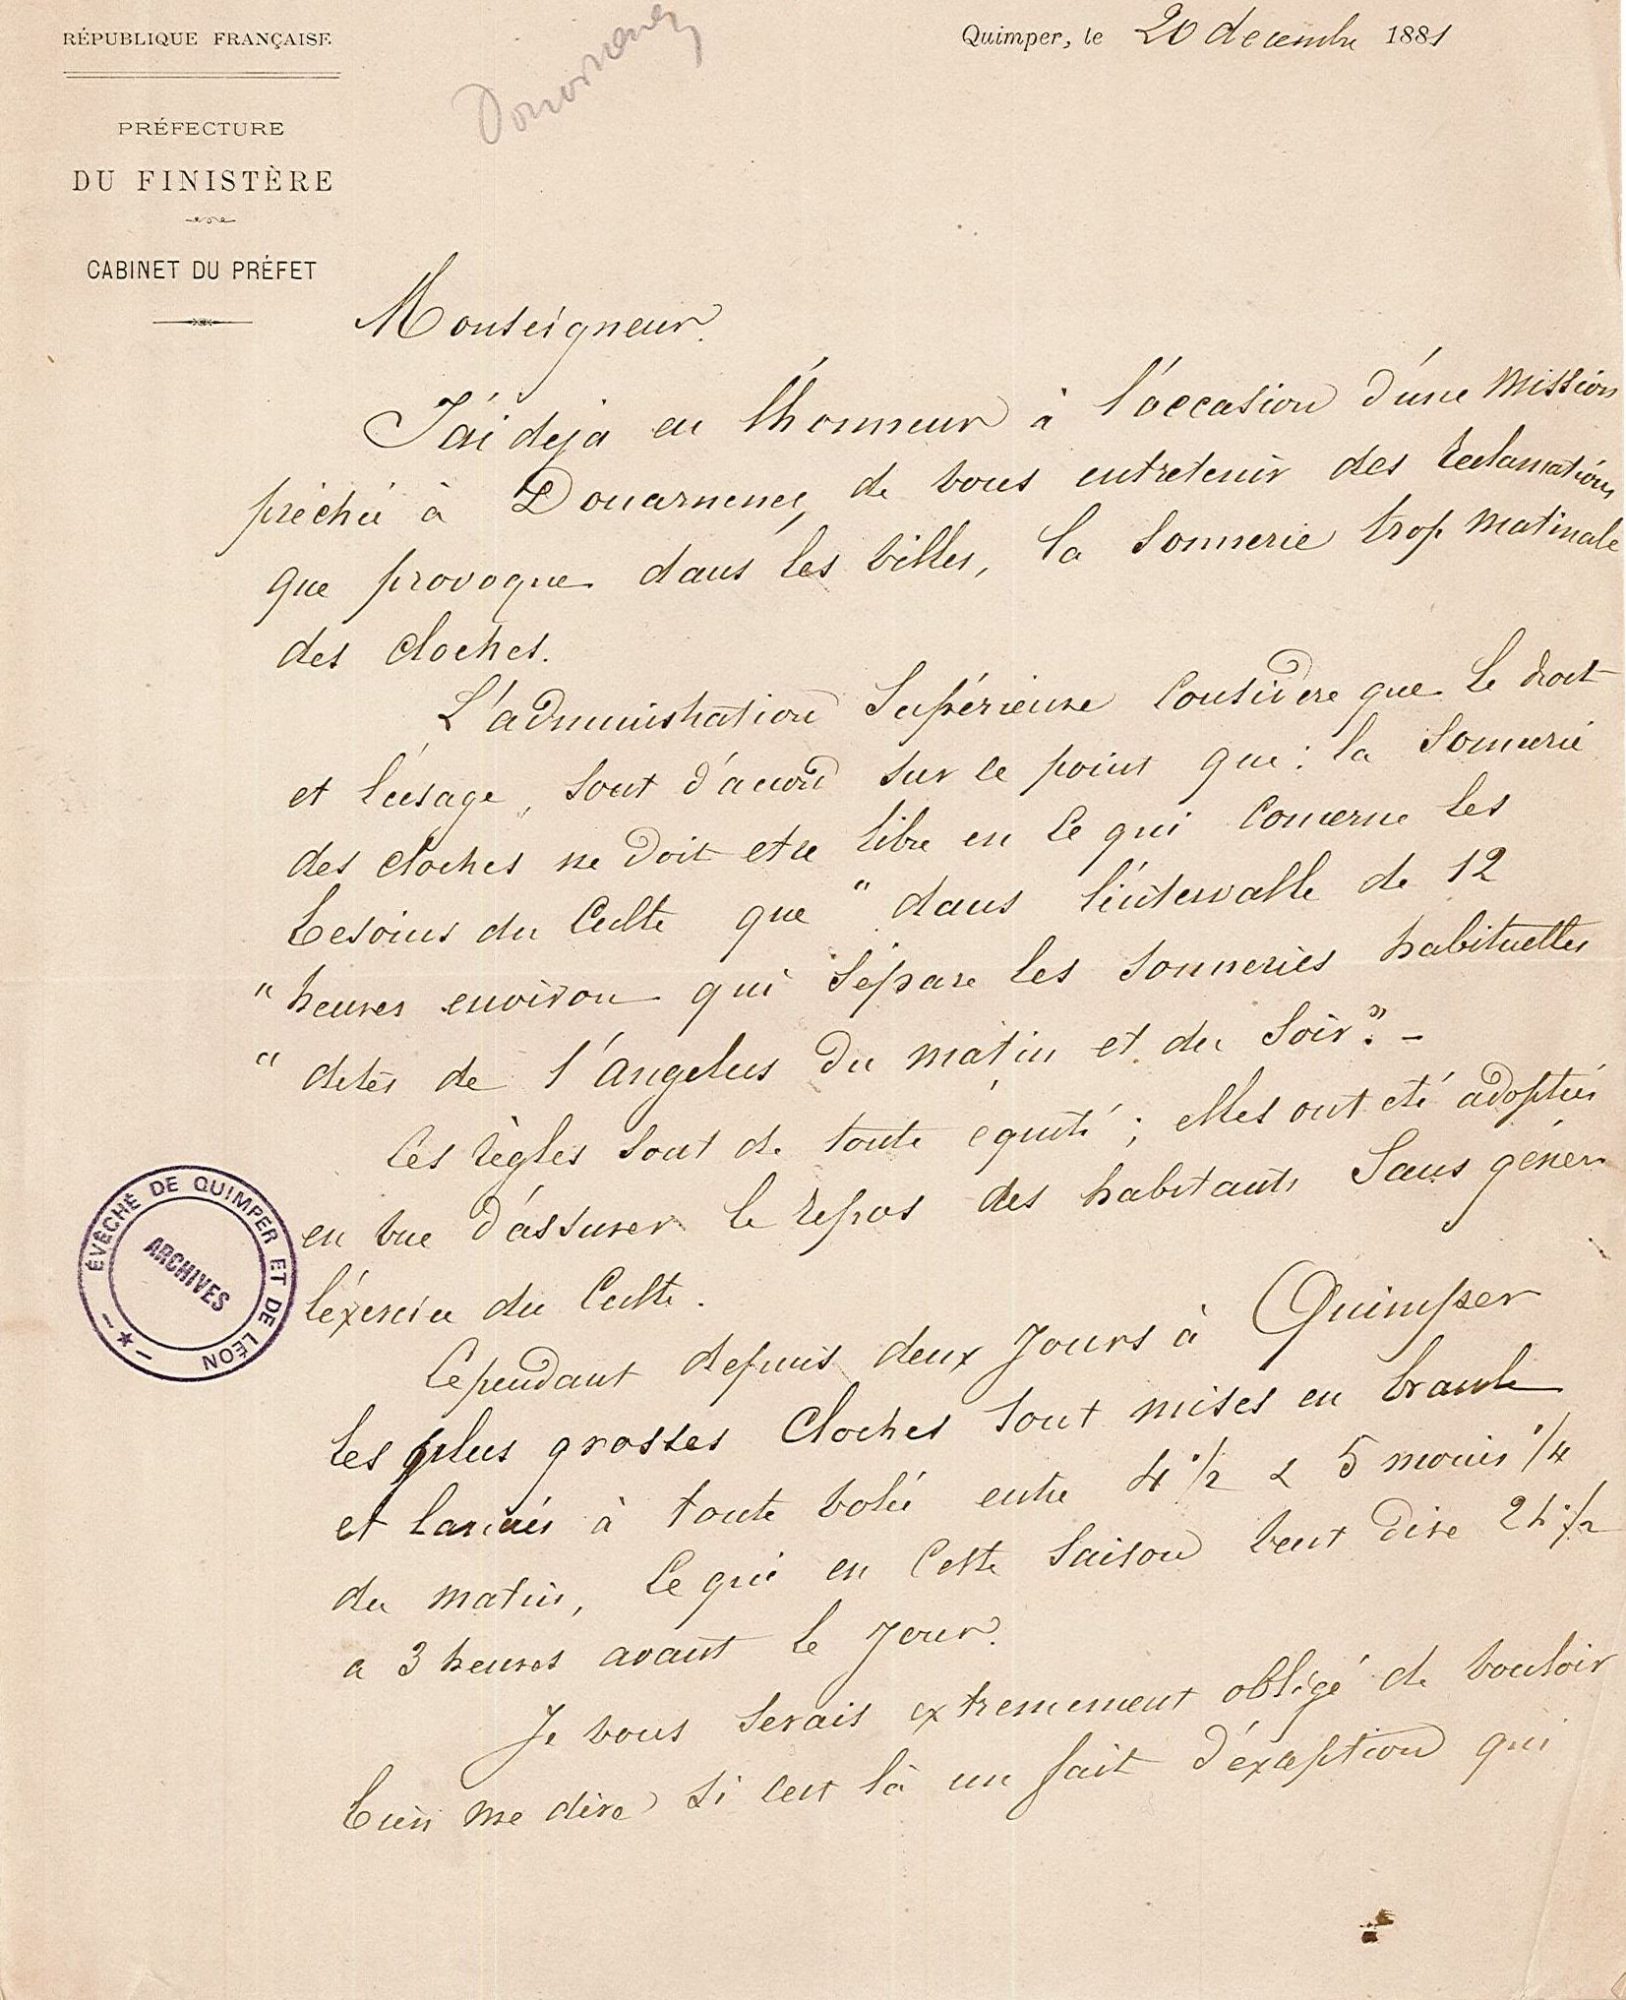 RÉPUBLIQUE FRANÇAISE
PRÉFECTURE
DU FINISTÈRE
CABINET DU PRÉFET
Douarnenez
Quimper, le 20 decembre 1881
Monseigneur.
J'ai deja eu l'honneur à l'occasion d'une Mission
préchée à Douarnenez, de vous entretenir des reclamations
que provoque dans les villes, la sonnerie trop matinale
des cloches.
L'administration Supérieure considere que le droit
et l'usage, sont d'accord sur ce point que : la sonnerie
des cloches ne doit etre libre en ce qui concerne les
besoins du Culte que " dans l'intervalle de 12
" heures environ qui sépare les sonneries habituelles
" dites de l'Angelus du matin et du soir". -
Ces règles sont de toute équité ; elles ont été adoptées
en vue d'assurer le repos des habitants sans géner
l'éxercice du Culte.
Cependant depuis deux jours à Quimper
les plus grosses cloches sont mises en branle
et lancées à toute volée entre 4 1/2 & 5 moins 1/4
du matin, ce qui en cette saison veut dire 2 h 1/2
a 3 heures avant le jour.
Je vous serais extremement obligé de vouloir
bien me dire si c'est là un fait d'éxception qui
ÉVÊCHÉ DE QUIMPER ET DE LÉON
ARCHIVES